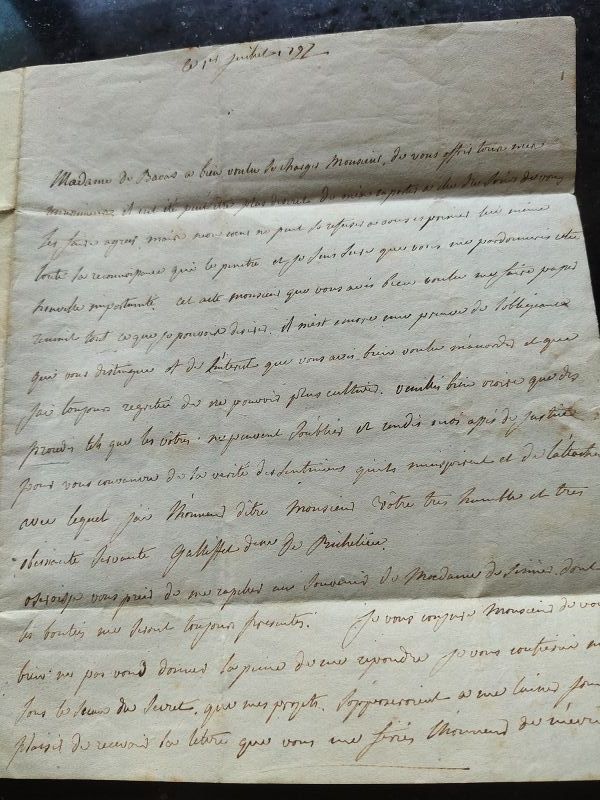 ce 1er juillet 1792
Madame de Bacas a bien voulu se charger Monsieur, de vous offrir tous mes
il eut été peut être plus discret de m'en rapporter a elle du soins de vous
les faire agréer, mais mon coeur ne peut se refuser a vous exprimer lui même
toute la reconnoissance qui le penetre et je sens Monsieur que vous me pardonnerés cette
importunité. cet acte monsieur que vous avés bien voulu me faire passer
reunit tout ce que je pouvois desirer. il m'est encore une preuve de l'obligeance
qui vous distingue et de l'interet que vous avés bien voulu m'accorder et que
j'ai toujours regretté de ne pouvoir plus cultiver. veuillés bien croire que des
procedés tels que les vôtres ne peuvent s'oublier et rendés moi assés de justice
pour vous convaincre de la verité des sentimens qu'ils m'inspirent et de l'attache
avec lequel j'ai l'honneur d'être Monsieur vôtre très humble et très
obeissante servante Galleffet dsse De Richelieu
oserois je vous prier de me rapeller au souvenir de Madame de dont
les bontés me seront toujours presentes. je vous conjure Monsieur de vou
bien ne pas vous donner la peine de me repondre je vous confierai
sous le sceau du secret, que mes projets s'opposeroient a me laisser jou
plaisir de recevoir la lettre que vous me feriés l'honneur de m'ecri